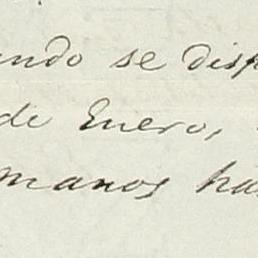 ndo se disp
de Enero,
manos ha